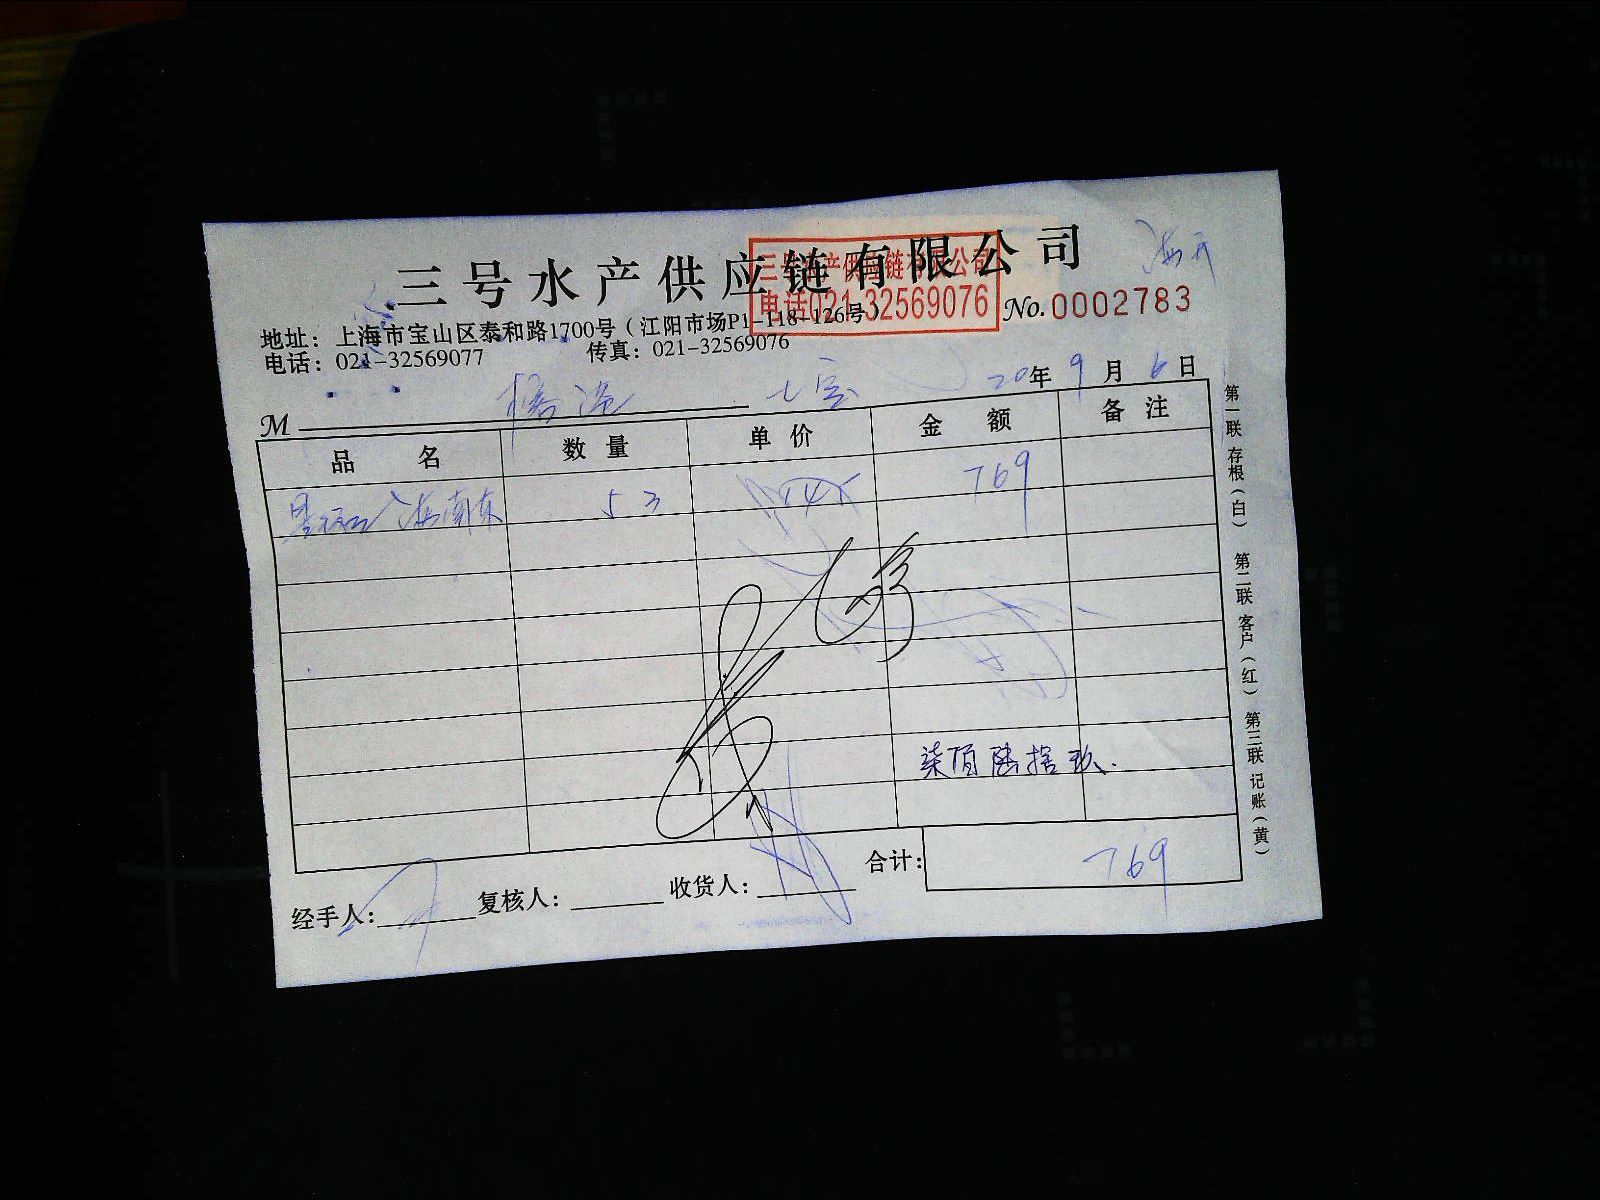 三号水产供应链有限公司
三号水产供应链有限公司
电话021-32569076
No.0002783
地址：上海市宝山区泰和路1700号（江阳市场P1-118-126号）
电话：021-32569077 传真：021-32569076
M
20年9月6日
品名 数量 单价 金额 备注
53 769
柒佰陆拾玖.
合计：769
经手人： 复核人： 收货人：
第一联 存根（白） 第二联 客户（红） 第三联 记账（黄）